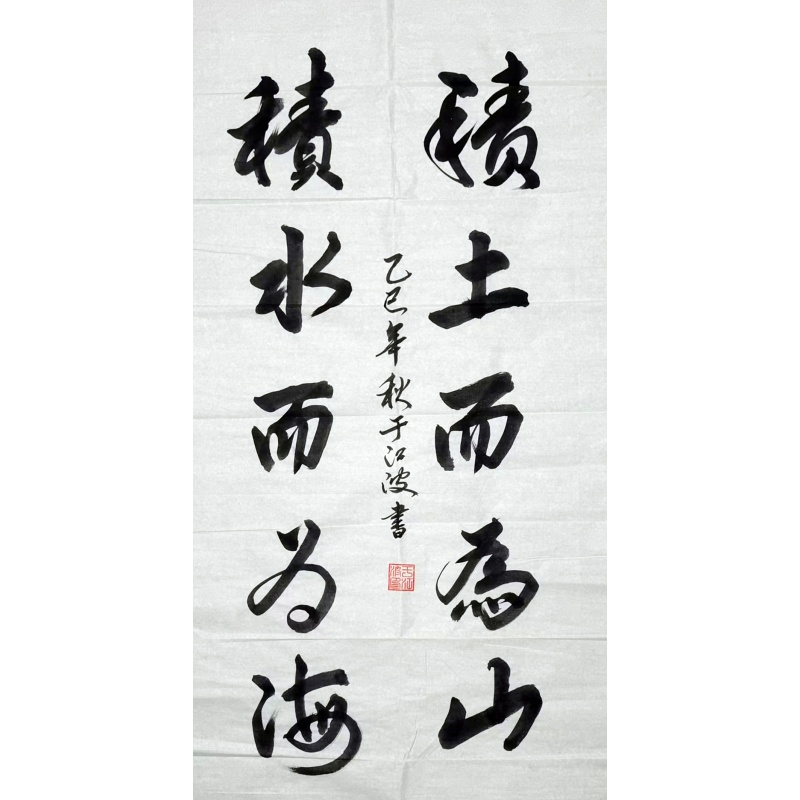 積土而為山
乙巳年秋于江波書
積水而為海